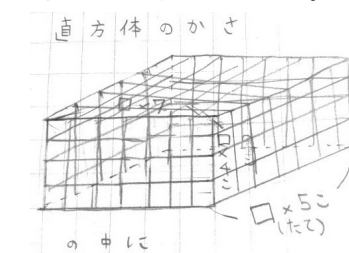 直方体のかさ
□×7
□×4こ
□×5こ
(たて)
の中に